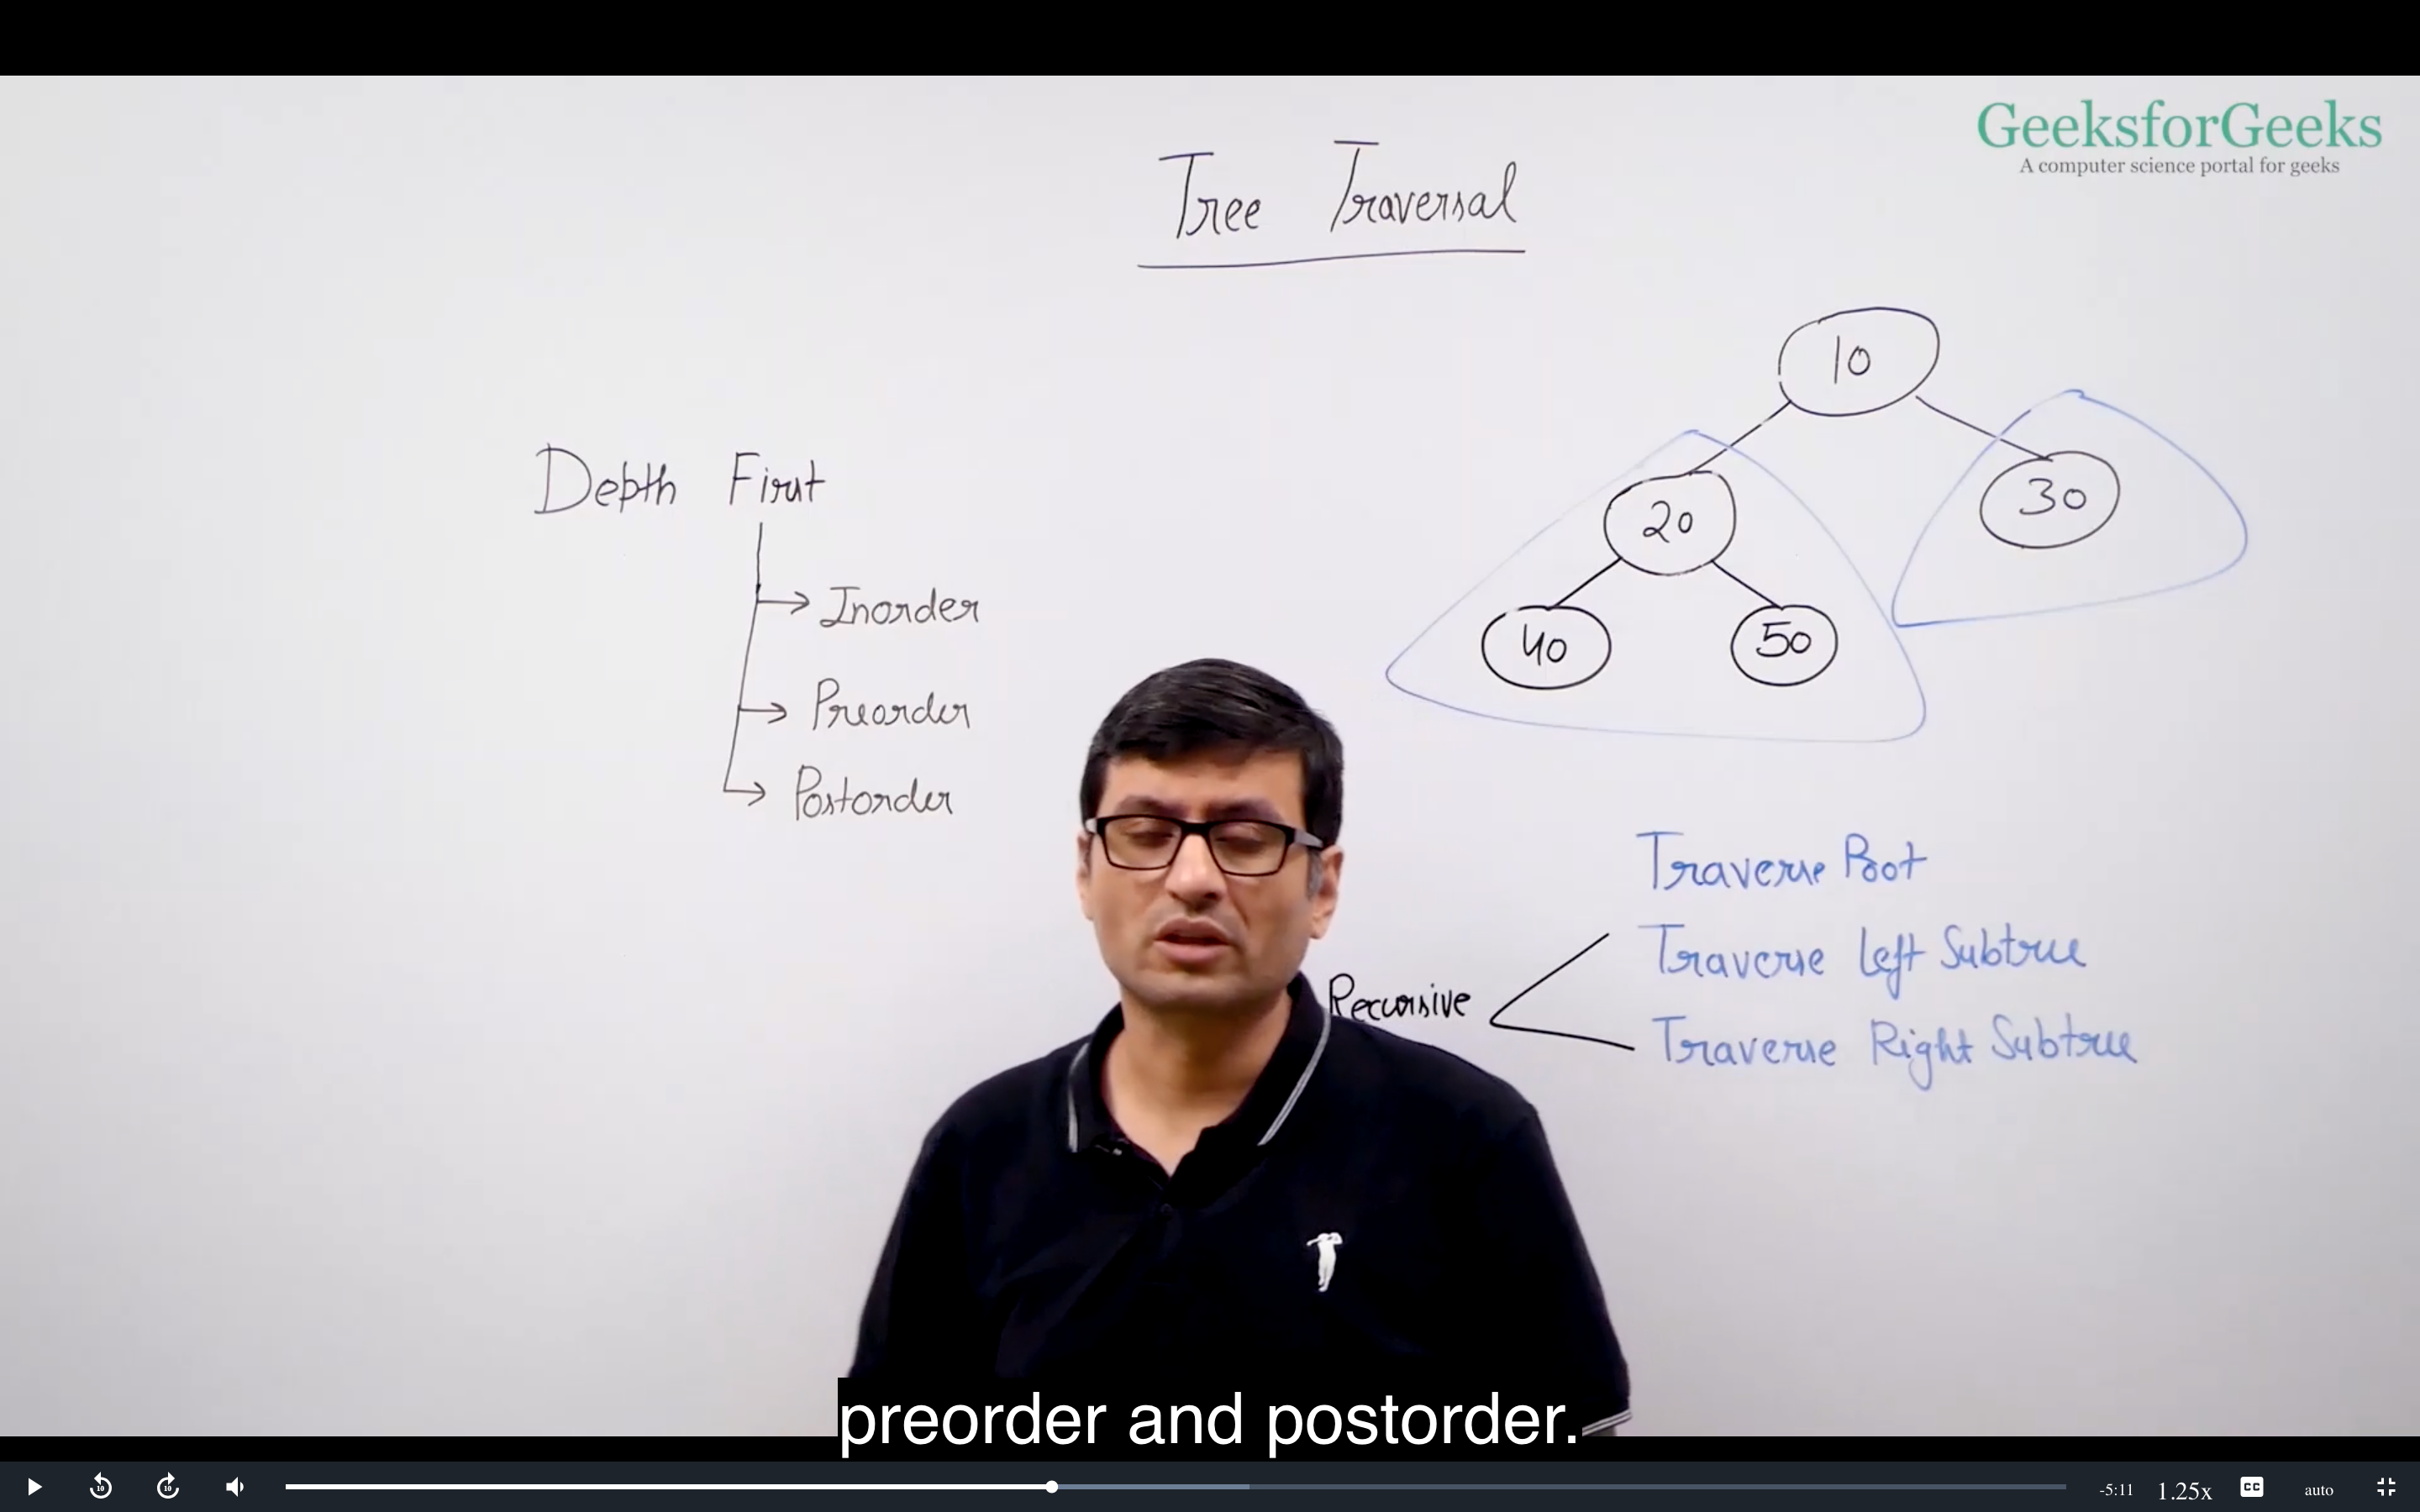 GeeksforGeeks
A computer science portal for geeks
Tree Traversal
10
20
30
40
50
Depth First
Inorder
Preorder
Postorder
Traverse Root
Recursive
Traverse Left Subtree
Traverse Right Subtree
preorder and postorder.
10
10
-5:11
1.25x
CC
auto